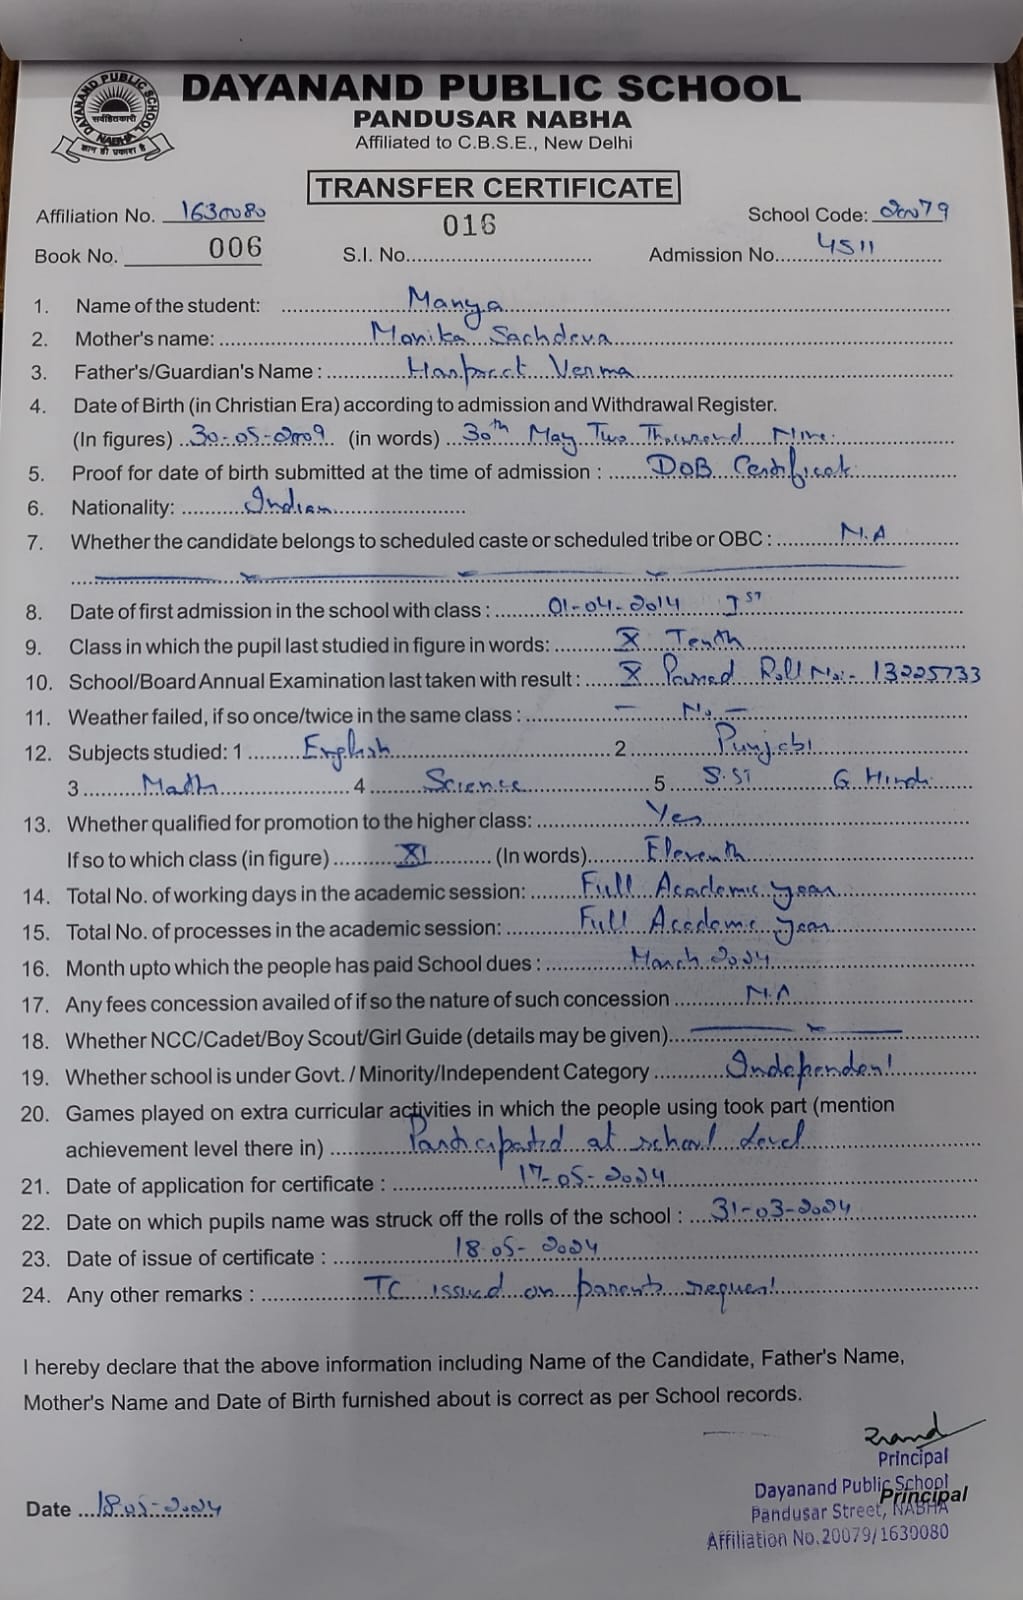 DAYANAND PUBLIC SCHOOL NABHA
सर्वहितकारी
ज्ञान ही प्रकाश है
DAYANAND PUBLIC SCHOOL
PANDUSAR NABHA
Affiliated to C.B.S.E., New Delhi
TRANSFER CERTIFICATE
Affiliation No. 1630080 School Code: 20079
Book No. 006 S.I. No. 016 Admission No. 4511
1. Name of the student: Manya
2. Mother's name: Monika Sachdeva
3. Father's/Guardian's Name : Harpreet Verma
4. Date of Birth (in Christian Era) according to admission and Withdrawal Register.
(In figures) 30-05-2009 (in words) 30th May Two Thousand Nine.
5. Proof for date of birth submitted at the time of admission : DOB Certificate
6. Nationality: Indian
7. Whether the candidate belongs to scheduled caste or scheduled tribe or OBC : N.A
8. Date of first admission in the school with class : 01-04-2014 Ist
9. Class in which the pupil last studied in figure in words: X Tenth
10. School/Board Annual Examination last taken with result : X Passed Roll No:- 13225733
11. Weather failed, if so once/twice in the same class : - No -
12. Subjects studied: 1 English 2 Punjabi
3 Math 4 Science 5 S.ST 6. Hindi
13. Whether qualified for promotion to the higher class: Yes
If so to which class (in figure) XI (In words) Eleventh
14. Total No. of working days in the academic session: Full Academic year
15. Total No. of processes in the academic session: Full Academic year
16. Month upto which the people has paid School dues : March 2024
17. Any fees concession availed of if so the nature of such concession N.A
18. Whether NCC/Cadet/Boy Scout/Girl Guide (details may be given)
19. Whether school is under Govt. / Minority/Independent Category Independent
20. Games played on extra curricular activities in which the people using took part (mention
achievement level there in) Participated at school level
21. Date of application for certificate : 17-05-2024
22. Date on which pupils name was struck off the rolls of the school : 31-03-2024
23. Date of issue of certificate : 18-05-2024
24. Any other remarks : TC issued on parents request
I hereby declare that the above information including Name of the Candidate, Father's Name,
Mother's Name and Date of Birth furnished about is correct as per School records.
Principal
Dayanand Public School
Date 18-05-2024 Principal
Pandusar Street, NABHA
Affiliation No.20079/1630080